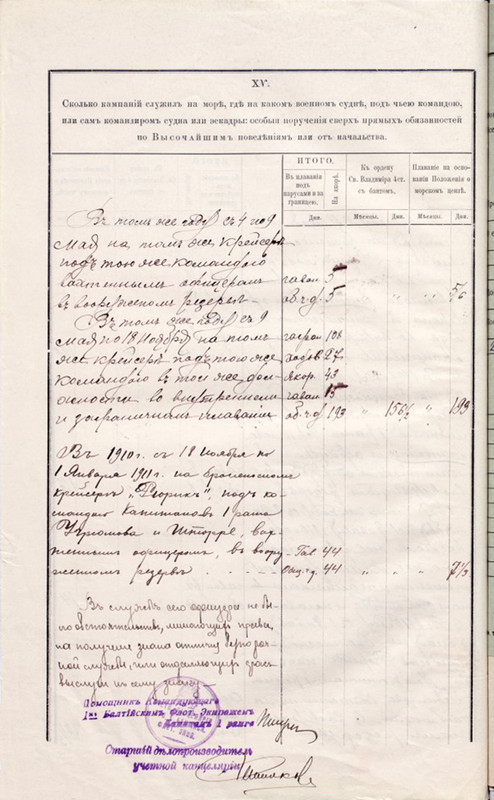 XV.
Сколько кампаній служилъ на морѣ, гдѣ на какомъ военномъ суднѣ, подъ чьею командою,
или самъ командиромъ судна или эскадры: особыя порученія сверхъ прямыхъ обязанностей
по Высочайшимъ повелѣніямъ или отъ начальства.
ИТОГО.
Въ плаваніи подъ парусами и за границею.
На якорѣ.
Къ ордену Св. Владиміра 4 ст. съ бантомъ.
Плаваніе на основаніи Положенія о морскомъ цензѣ.
Дни. Мѣсяцы. Дни. Мѣсяцы. Дни.
Въ томъ же году съ 4 по 9
мая на томъ же крейсерѣ
подъ тою же командою
вахтеннымъ офицеромъ гаван. 5
въ вооруженномъ резервѣ. об. ч. д. 5 " " "
Въ томъ же году съ 9
мая по 18 Ноября на томъ загран. 106
же крейсерѣ подъ тою же ходов. 27
командою въ той же дол- Якор. 43
жности во внутреннемъ гаван. 15
и заграничномъ плаваніи об. ч. д. 193 " 156½ " 193
Въ 1910 г. съ 18 Ноября по
1 Января 1911 г. на броненосномъ
крейсерѣ „Рюрикъ“, подъ ко-
мандою Капитановъ 1 ранга
Угрюмова и Шторре, вах-
теннымъ офицеромъ, въ воору- Гав. 44
женномъ резервѣ 44 " " "
Въ службѣ сего офицера не бы-
ло обстоятельствъ, лишающихъ права
на получение знака отличія безпороч-
ной службы, или отдаляющихъ срокъ
выслуги къ сему знаку.
Помощникъ Командующаго
1мъ Балтійскимъ Флот. Экипажемъ
Капитанъ 1 ранга
Старшій дѣлопроизводитель
учетной канцеляріи